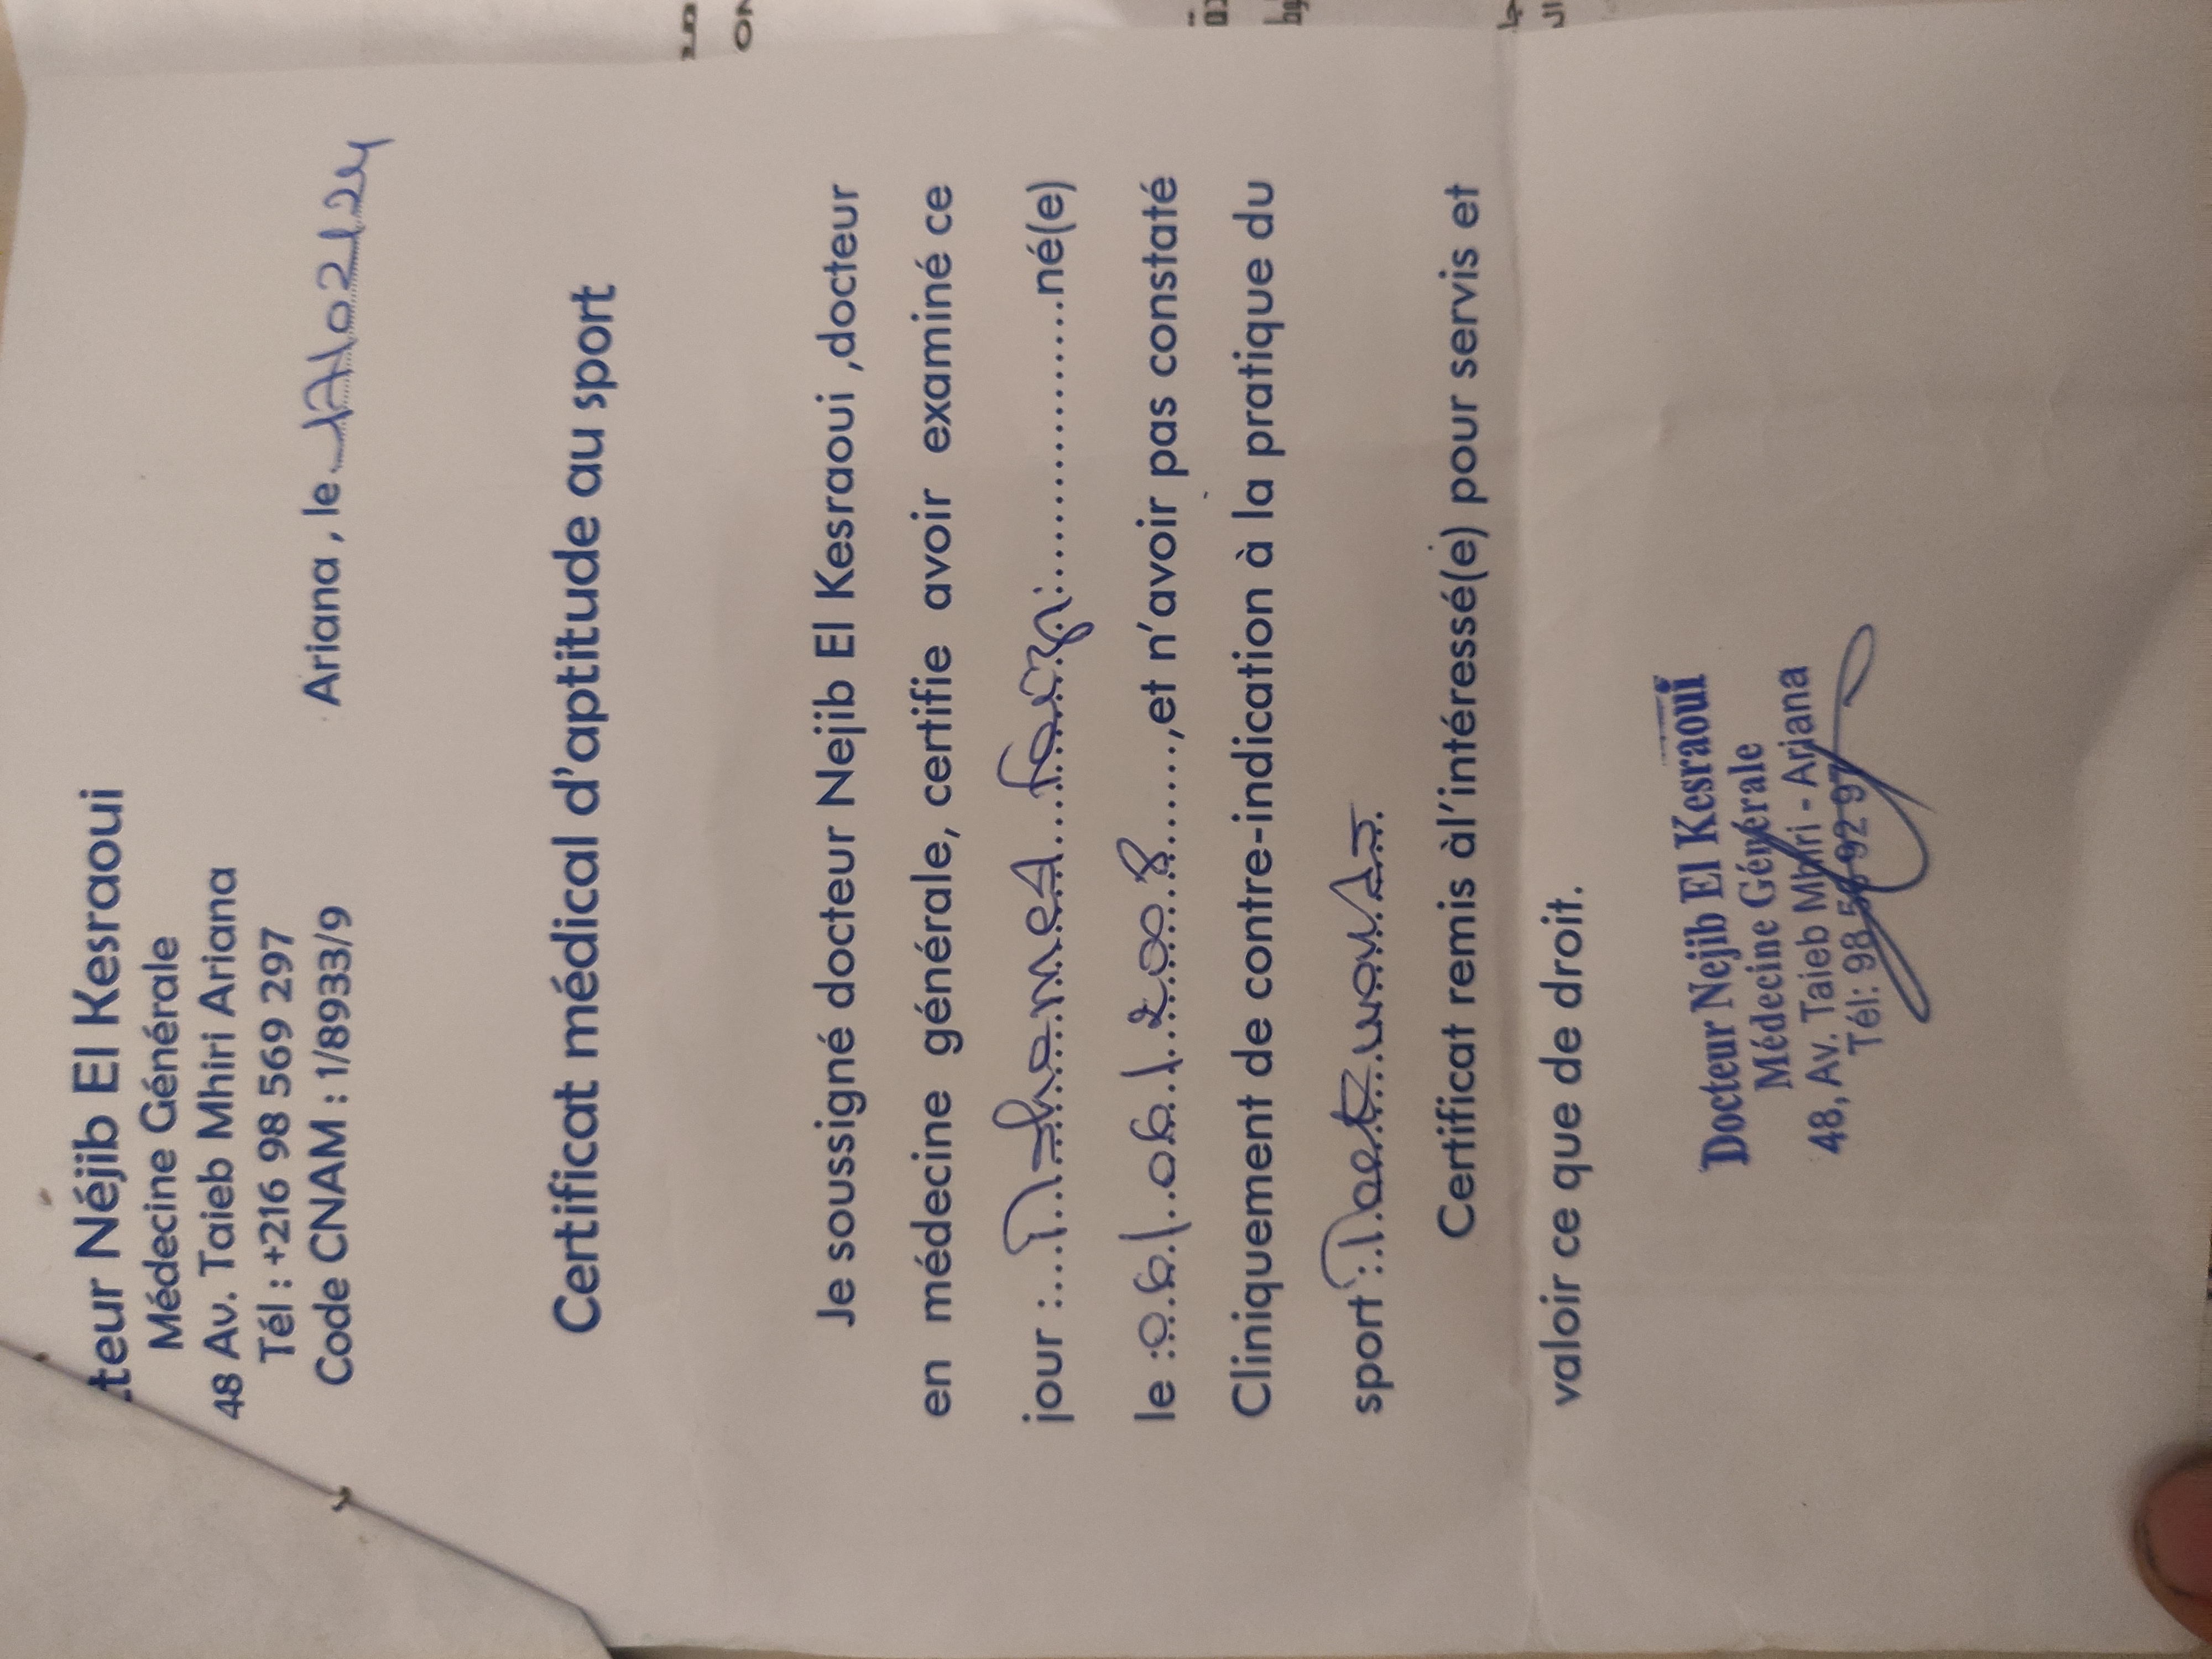 teur Néjib El Kesraoui
Médecine Générale
48 Av. Taieb Mhiri Ariana
Tél : +216 98 569 297
Code CNAM : 1/8933/9
Ariana , le 17/02/24
Certificat médical d'aptitude au sport
Je soussigné docteur Nejib El Kesraoui ,docteur
en médecine générale, certifie avoir examiné ce
jour : né(e)
le : 06/06/2008 ,et n'avoir pas constaté
Cliniquement de contre-indication à la pratique du
sport :
Certificat remis àl'intéressé(e) pour servis et
valoir ce que de droit.
Docteur Nejib El Kesraoui
Médecine Générale
48, Av. Taieb Mhiri - Ariana
Tél: 98 56 92 97